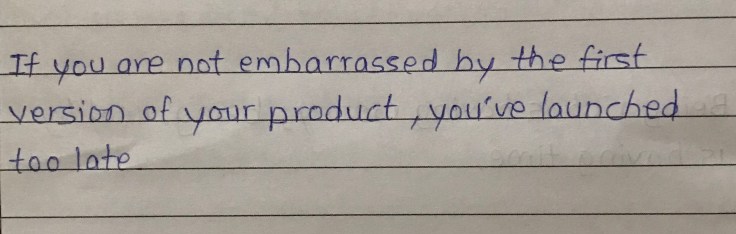 If you are not embarrassed by the first
version of your product, you've launched
too late